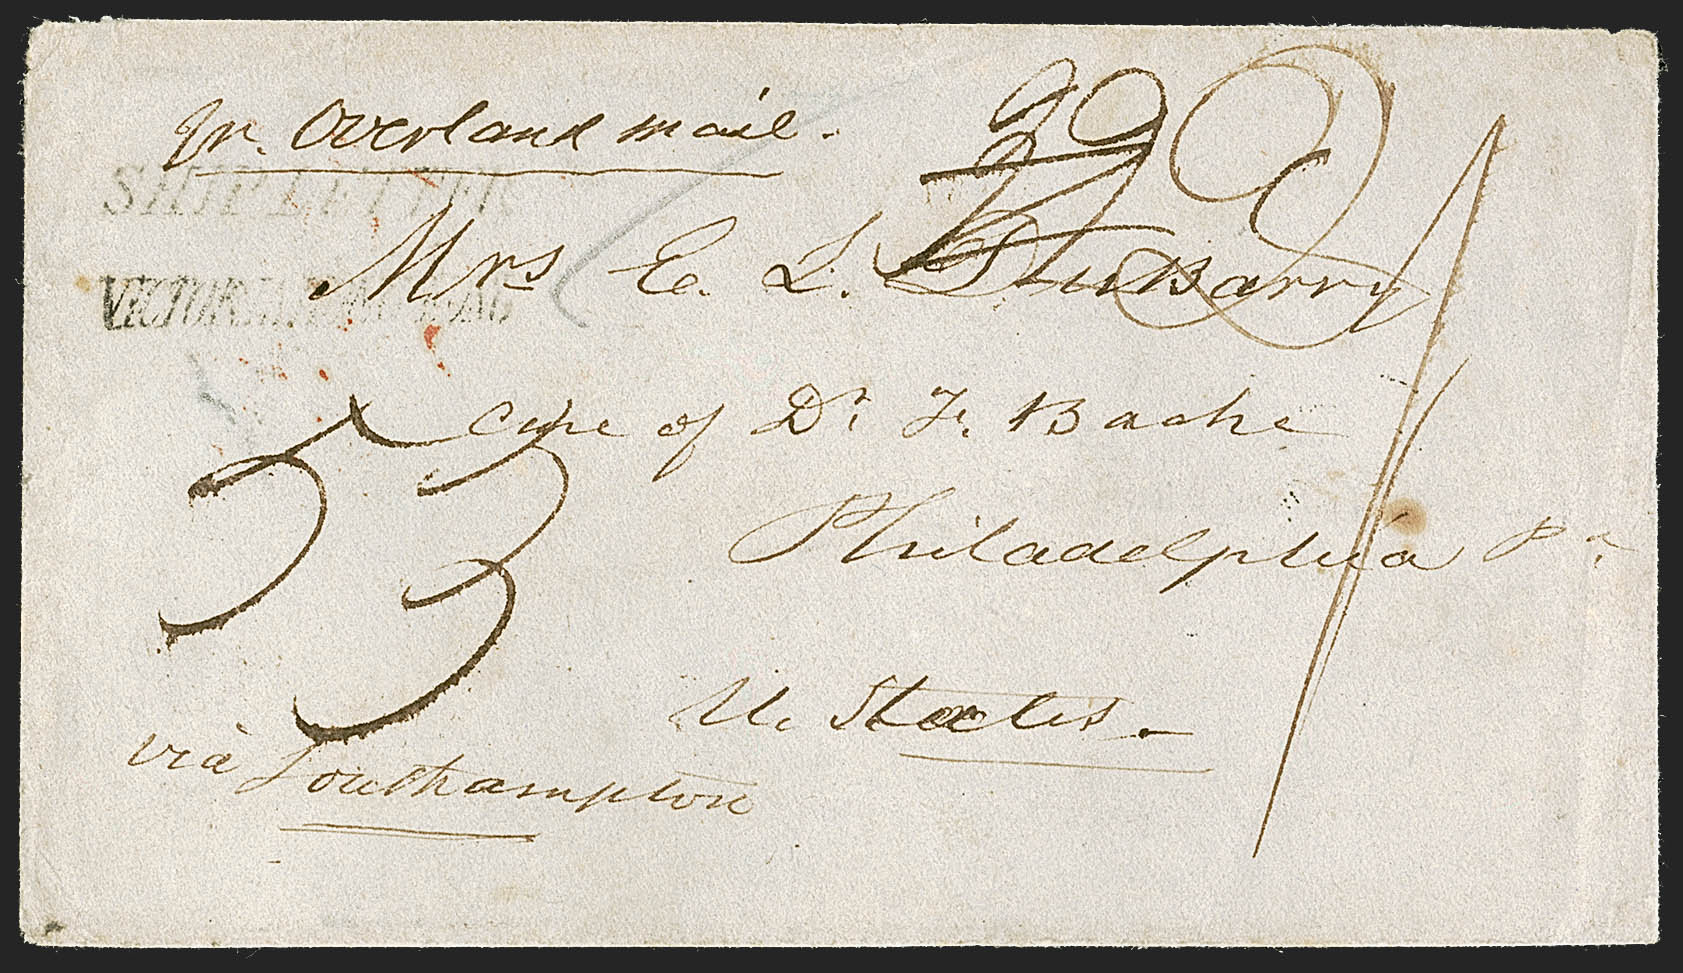 pr. Overland mail.
SHIP LETTER
Mrs E. L. DuBarry
VICTORIA HONG KONG
Care of Dr F. Bache
33
Philadelphia Pa
U. States.
via Southampton